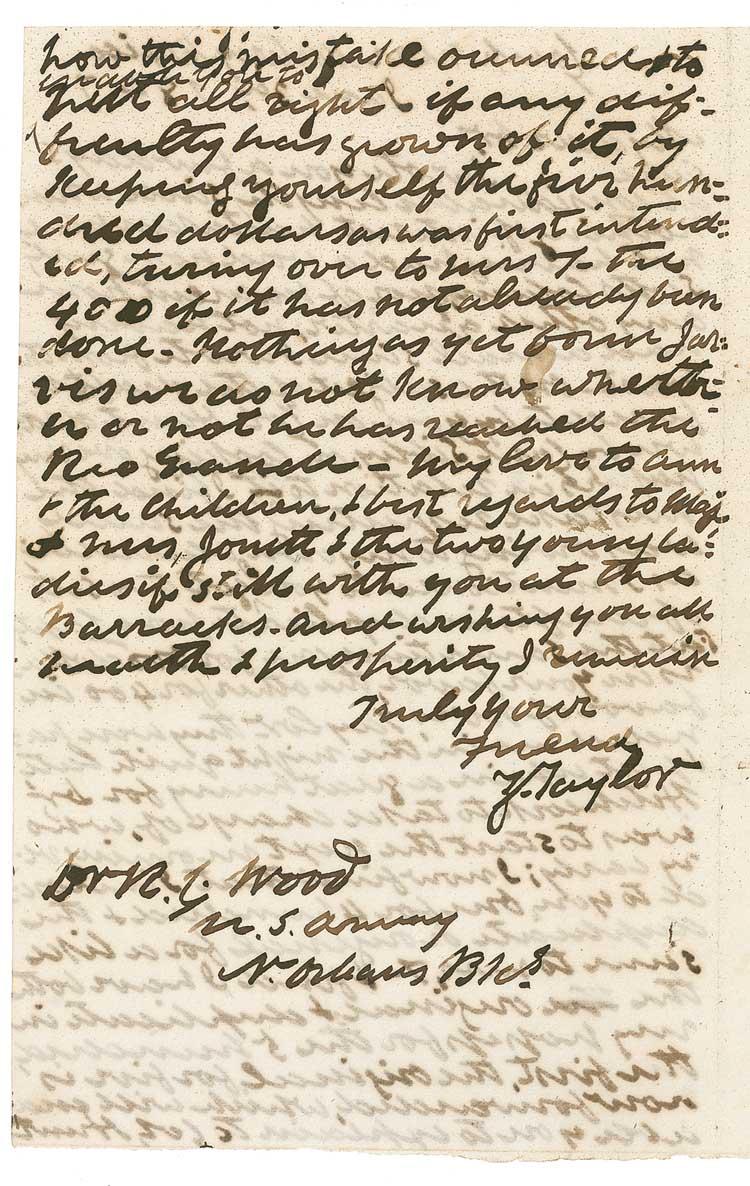 how this mistake occurred & to
enable you to
put all right & if any dif-
ficulty has grown of it, by
keeping yourself the five hun=
dred dollars as was first intend=
ed, turing over to Mrs T. the
400 if it has not already been
done - Nothing as yet from Jar-
vis we do not know wheth-
er or not he has reached the
Rio Grande - My love to Ann
& the children, & best regards to Maj
& Mrs, Jouett & the two young la-
dies if still with you at the
Barracks. and wishing you all
health & prosperity I remain
Truly your
Friend
Z. Taylor
Dr R. C. Wood
U. S. Army
N. Orleans Bks